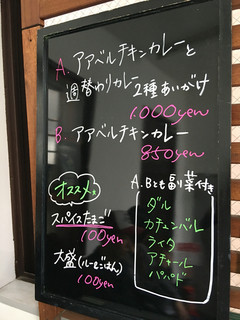 A. アアベルチキンカレーと
週替わりカレー2種あいがけ
1.000yen
B. アアベルチキンカレー
850yen
オススメ
スパイスたまご
100yen
大盛(ルーもごはん)
100yen
A.Bとも副菜付き
ダル
カチュンバル
ライタ
アチャール
パパド